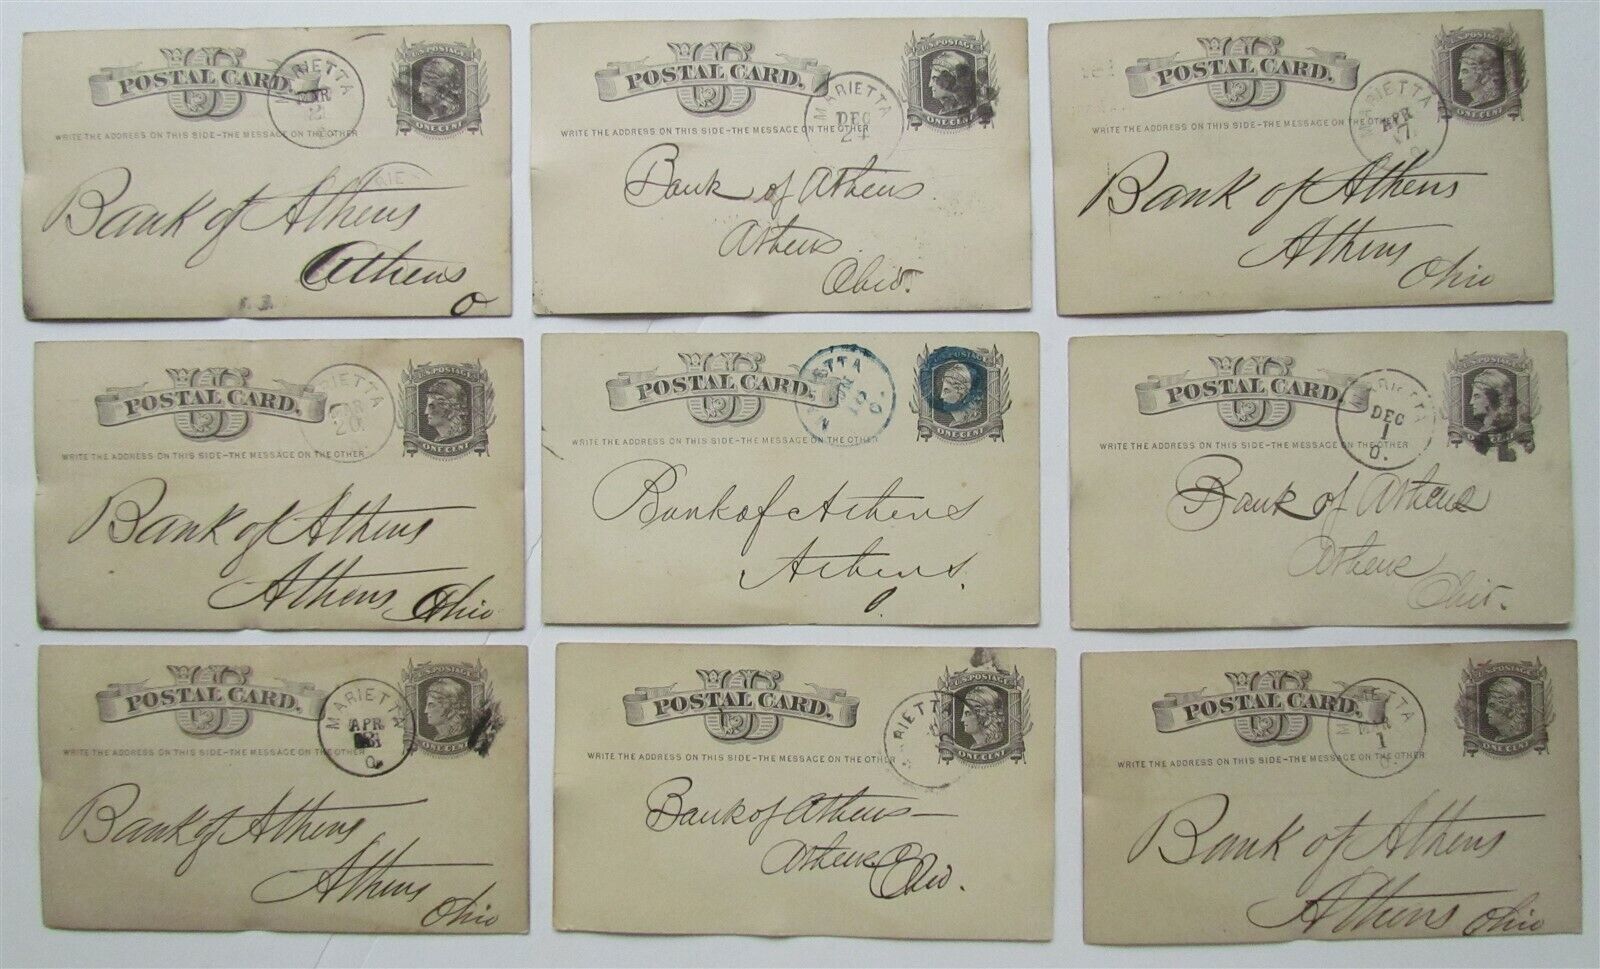 POSTAL CARD.
MARIETTA
MAR
U.S. POSTAGE
ONE CENT
WRITE THE ADDRESS ON THIS SIDE-THE MESSAGE ON THE OTHER
Bank of Athens
Athens
O
POSTAL CARD.
MARIETTA
DEC
U.S. POSTAGE
ONE CENT
WRITE THE ADDRESS ON THIS SIDE-THE MESSAGE ON THE OTHER
Bank of Athens
Athens
Ohio.
POSTAL CARD.
MARIETTA
APR
17
O
ONE CENT
WRITE THE ADDRESS ON THIS SIDE-THE MESSAGE ON THE OTHER
Bank of Athens
Athens
Ohio
POSTAL CARD.
MARIETTA
MAR
20
U.S. POSTAGE
ONE CENT
WRITE THE ADDRESS ON THIS SIDE-THE MESSAGE ON THE OTHER
Bank of Athens
Athens Ohio
POSTAL CARD.
ETTA
O.
U.S. POSTAGE
ONE CENT
WRITE THE ADDRESS ON THIS SIDE-THE MESSAGE ON THE OTHER
Bank of Athens
Athens.
O.
POSTAL CARD.
ARIETTA
DEC
1
O.
U.S. POSTAGE
WRITE THE ADDRESS ON THIS SIDE-THE MESSAGE ON THE OTHER
Bank of Athens
Athens
Ohio.
POSTAL CARD.
MARIETTA
APR
O
U.S. POSTAGE
ONE CENT
WRITE THE ADDRESS ON THIS SIDE-THE MESSAGE ON THE OTHER
Bank of Athens
Athens
Ohio
POSTAL CARD.
ARIETTA
U.S. POSTAGE
ONE CENT
WRITE THE ADDRESS ON THIS SIDE-THE MESSAGE ON THE OTHER
Bank of Athens—
Athens
Ohio.
POSTAL CARD.
MARIETTA
1
U.S. POSTAGE
ONE CENT
WRITE THE ADDRESS ON THIS SIDE-THE MESSAGE ON THE OTHER
Bank of Athens
Athens Ohio